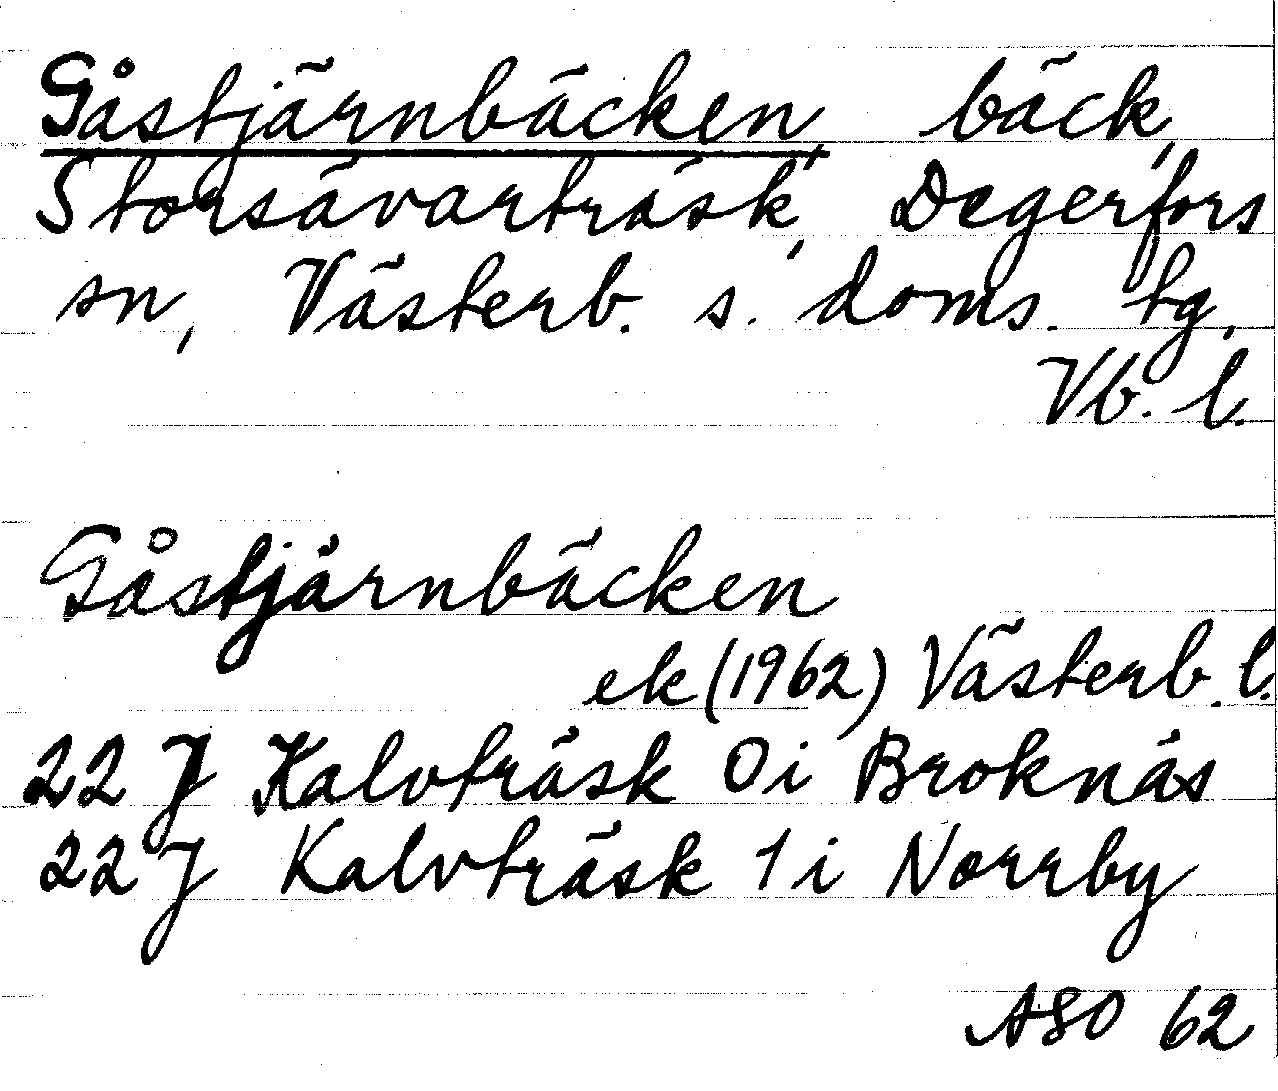 Gåstjärnbäcken, bäck,
Storsävarträsk, Degerfors
sn, Västerb. s. doms. tg,
Vb. l.
Gåstjärnbäcken
ek (1962) Västerb. l.
22 J Kalvträsk 0i Broknäs
22 J Kalvträsk 1i Norrby
ASO 62